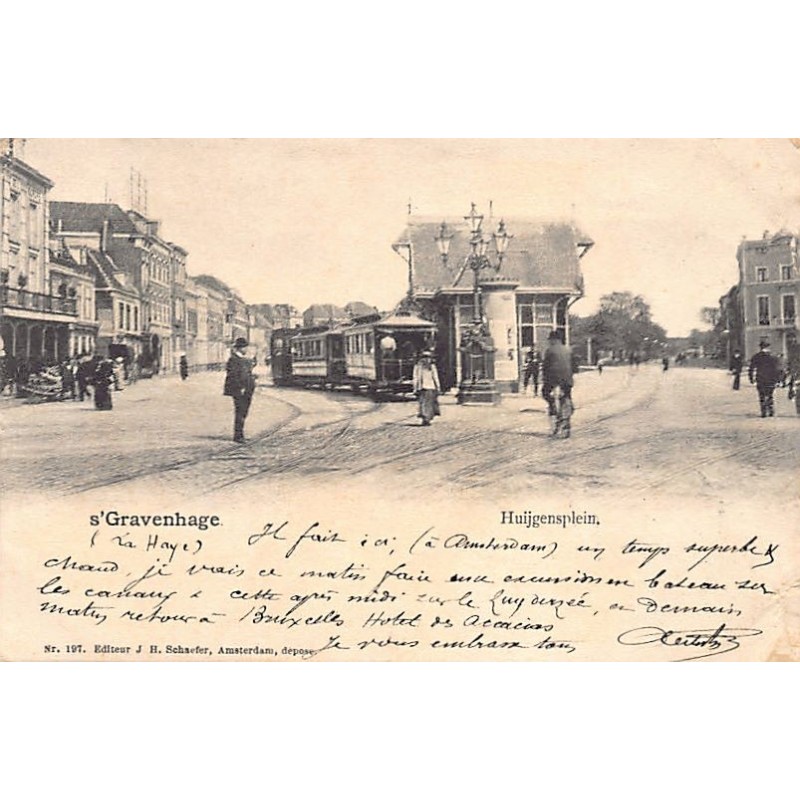 s'Gravenhage.
Huijgensplein.
(La Haye) Il fait ici, (à Amsterdam) un temps superbe &
chaud, je vais ce matin faire une excursion en bateau sur
les canaux & cette après midi sur le Zuyderzée, et Demain
matin retour à Bruxelles Hotel des Accacias
Je vous embrasse tous
Nr. 197. Editeur J H. Schaefer, Amsterdam, depose.